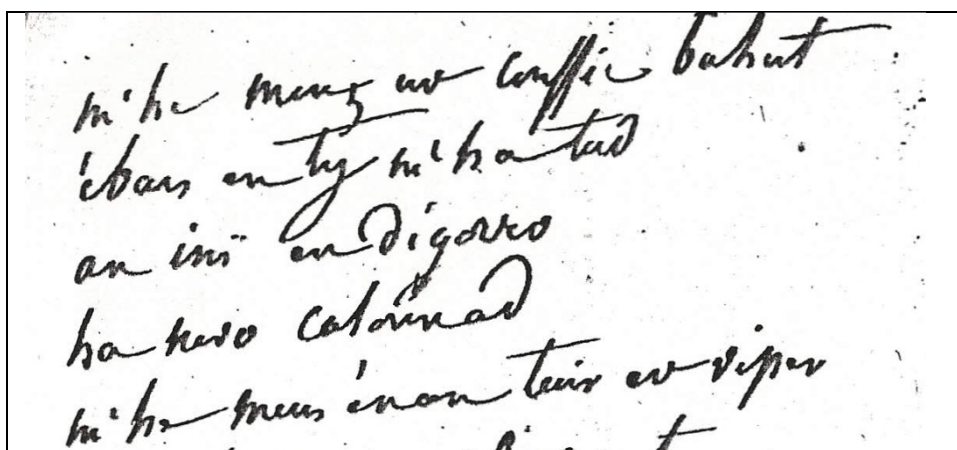 m'he meuz ur couffr bahut
ébars en ty m'ha tad
an ini en digorro
ha nevo calonnad
m'he meus énan teir er viper